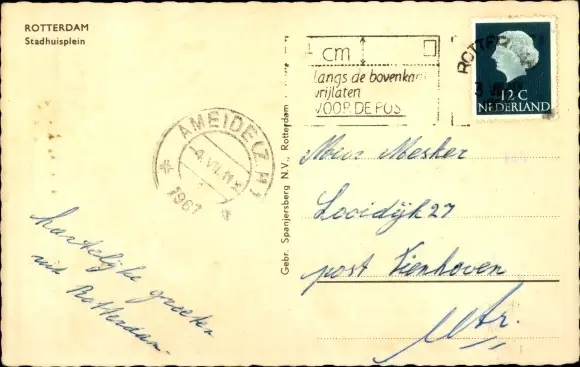 ROTTERDAM
Stadhuisplein
cm
langs de bovenkant
vrijlaten
VOOR DE POS
ROTTERDAM
3
12 C
NEDERLAND
AMEIDE (Z H)
-4.VII.11
1961
Gebr. Spanjersberg N.V., Rotterdam
hartelijke groeten
uit Rotterdam.
Mevr Mesker
Looidijk 27
post Tienhoven
Utr.